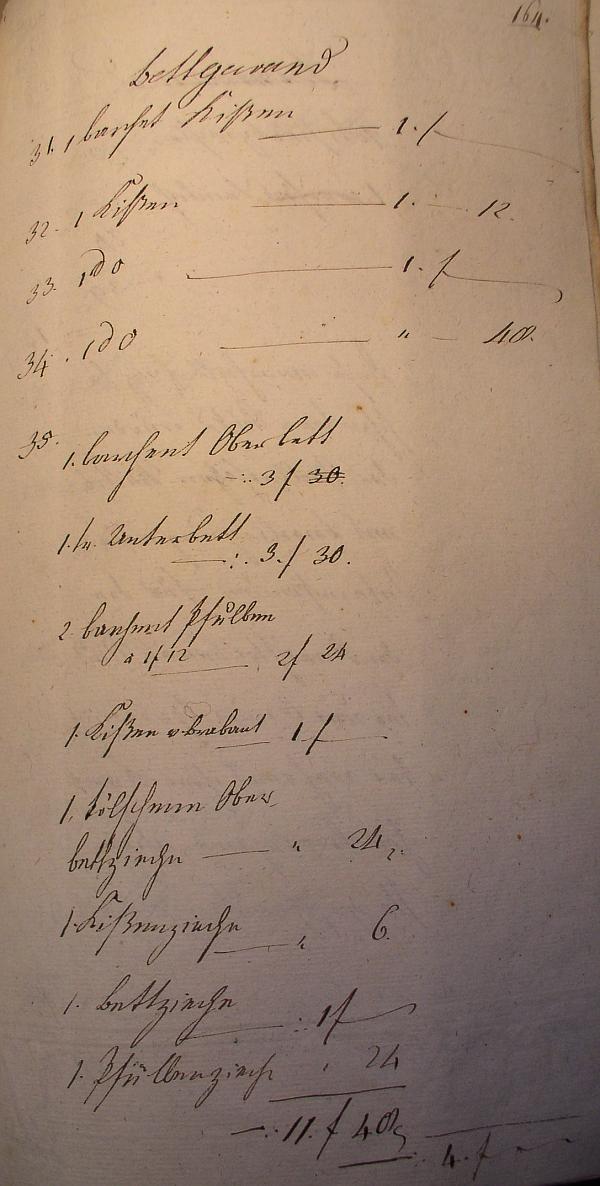 164.
Bettgewand
31. 1 barchet Kißen — 1. f
32. 1 Kißen — 1. — 12.
33. 1 do — 1. f
34. 1 do — " — 48.
35. 1. barchent Oberbett
—:. 3 f 30.
1. do. Unterbett
—:. 3. f 30.
2 barchent Pfulben
a 1 f 12 — 2 f 24
1. Kißen v Brabant — 1 f —
1. kölschenen Ober
bettzieche — " 24
1. Kißenzieche — " 6.
1. Bettzieche
—:. 1 f
1. Pfülbenzieche " 24
—:. 11. f 48
—:. 4. f —